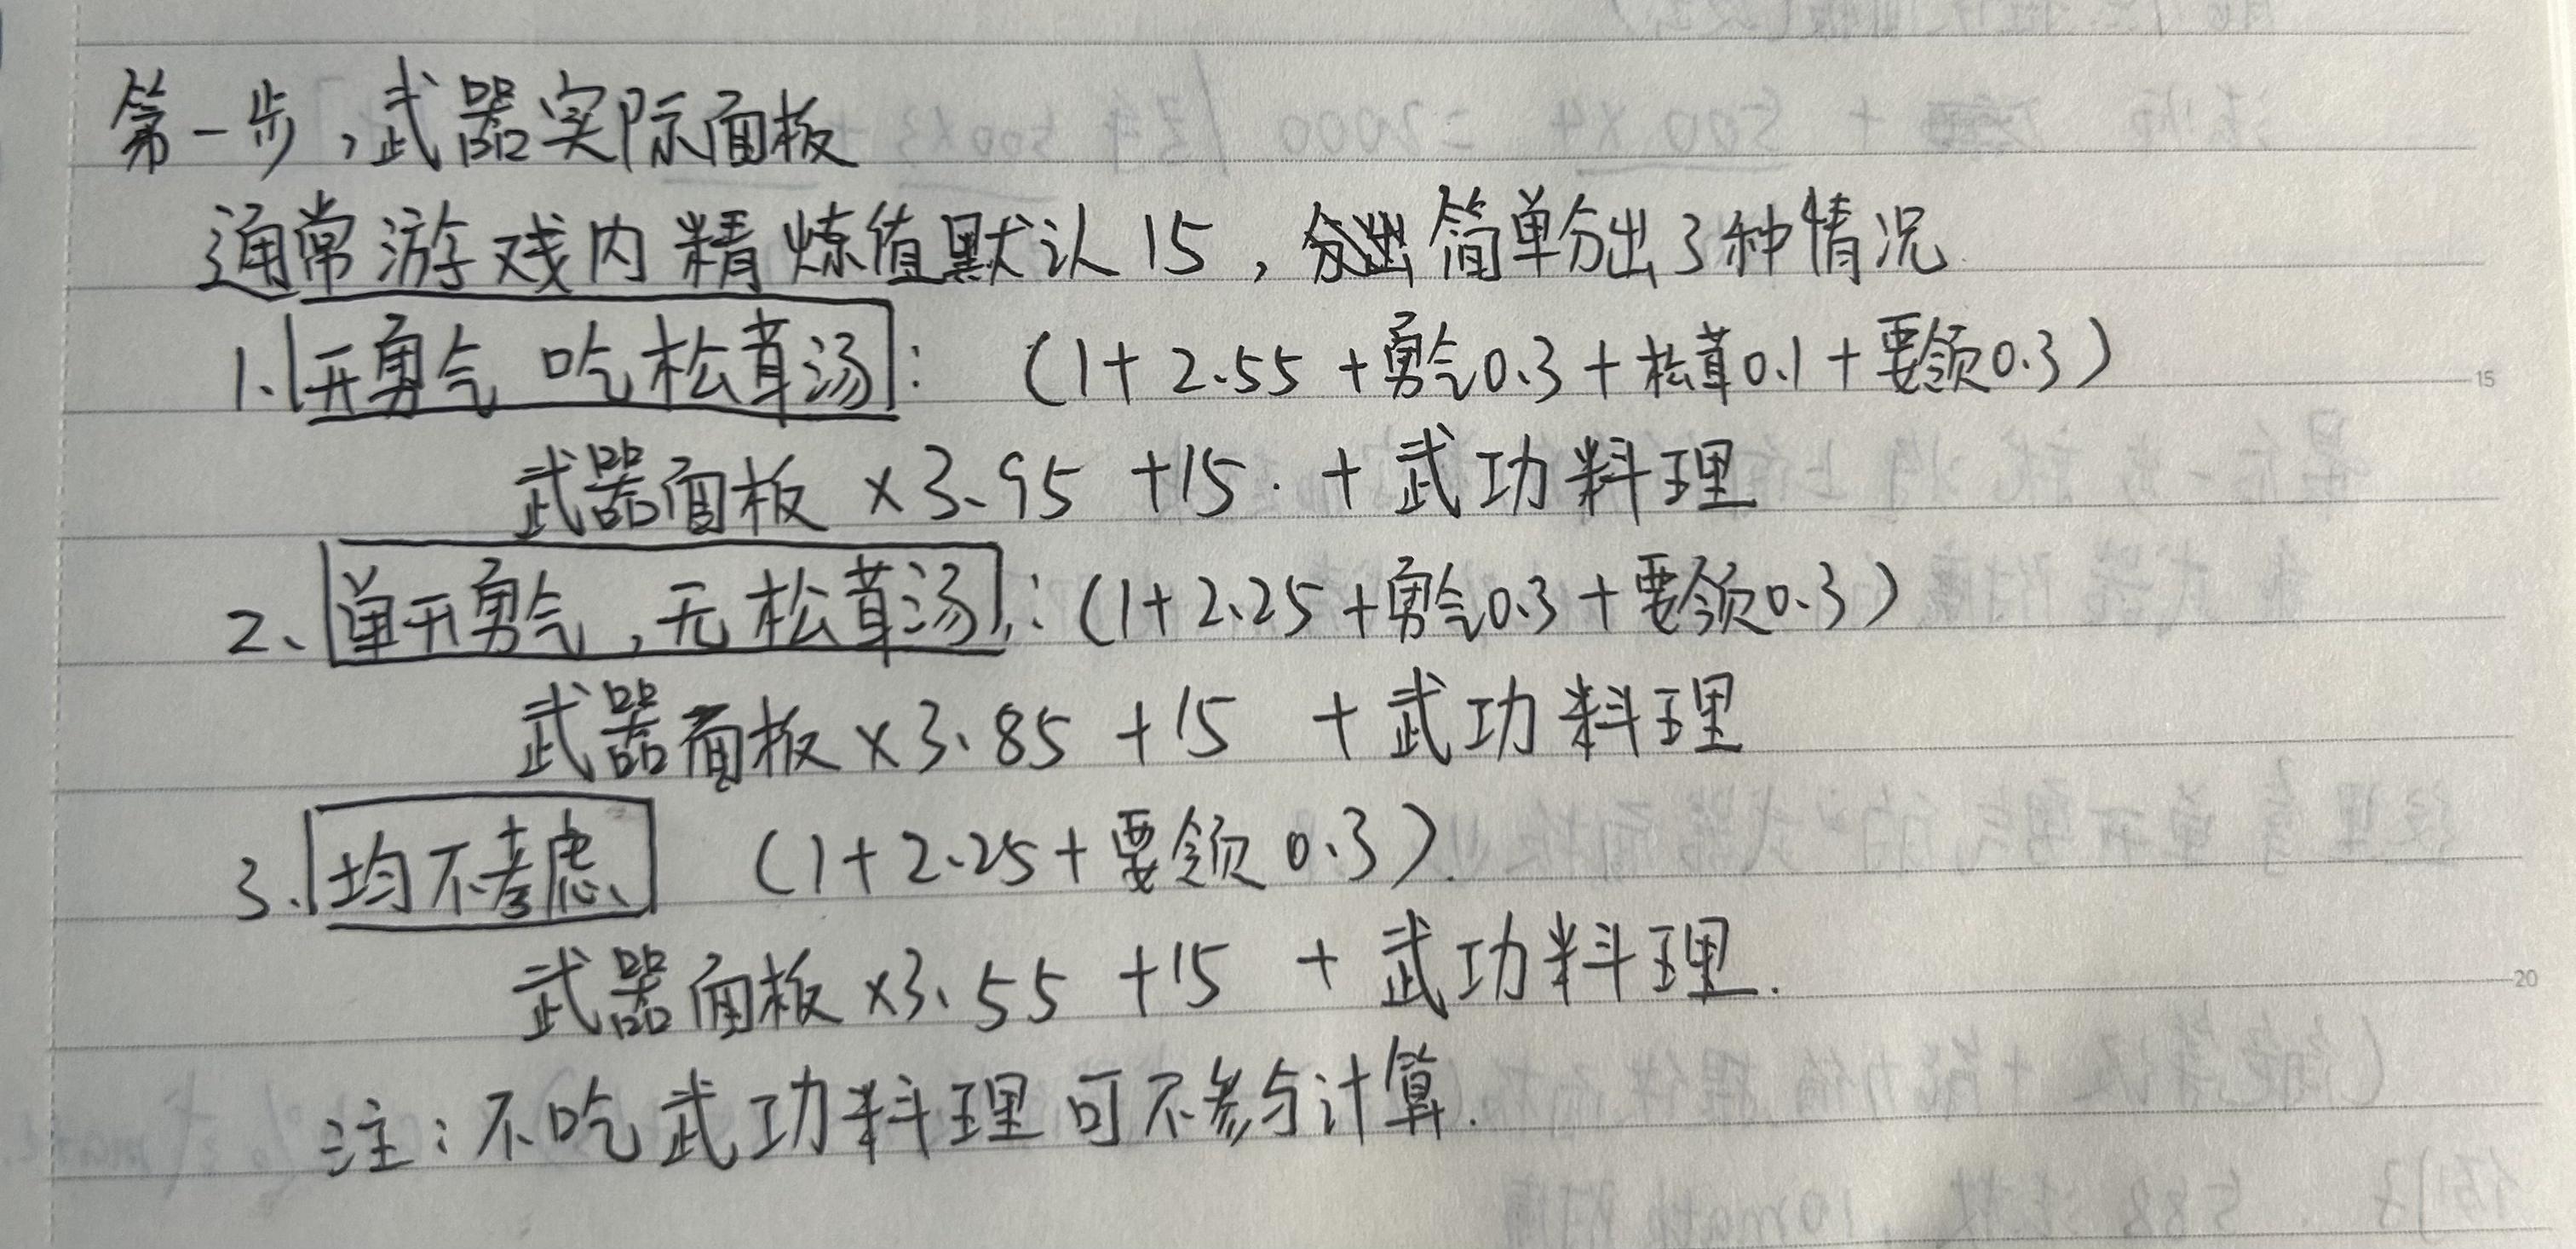 第一步，武器实际面板
通常游戏内精炼值默认15，简单分出3种情况
1.开勇气 吃松茸汤：（1+2.55+勇气0.3+松茸0.1+要领0.3）
武器面板×3.95+15.+武功料理
2、单开勇气，无松茸汤：（1+2.25+勇气0.3+要领0.3）
武器面板×3.85+15+武功料理
3.均不考虑（1+2.25+要领0.3）.
武器面板×3.55+15+武功料理.
注：不吃武功料理可不参与计算.
15
20